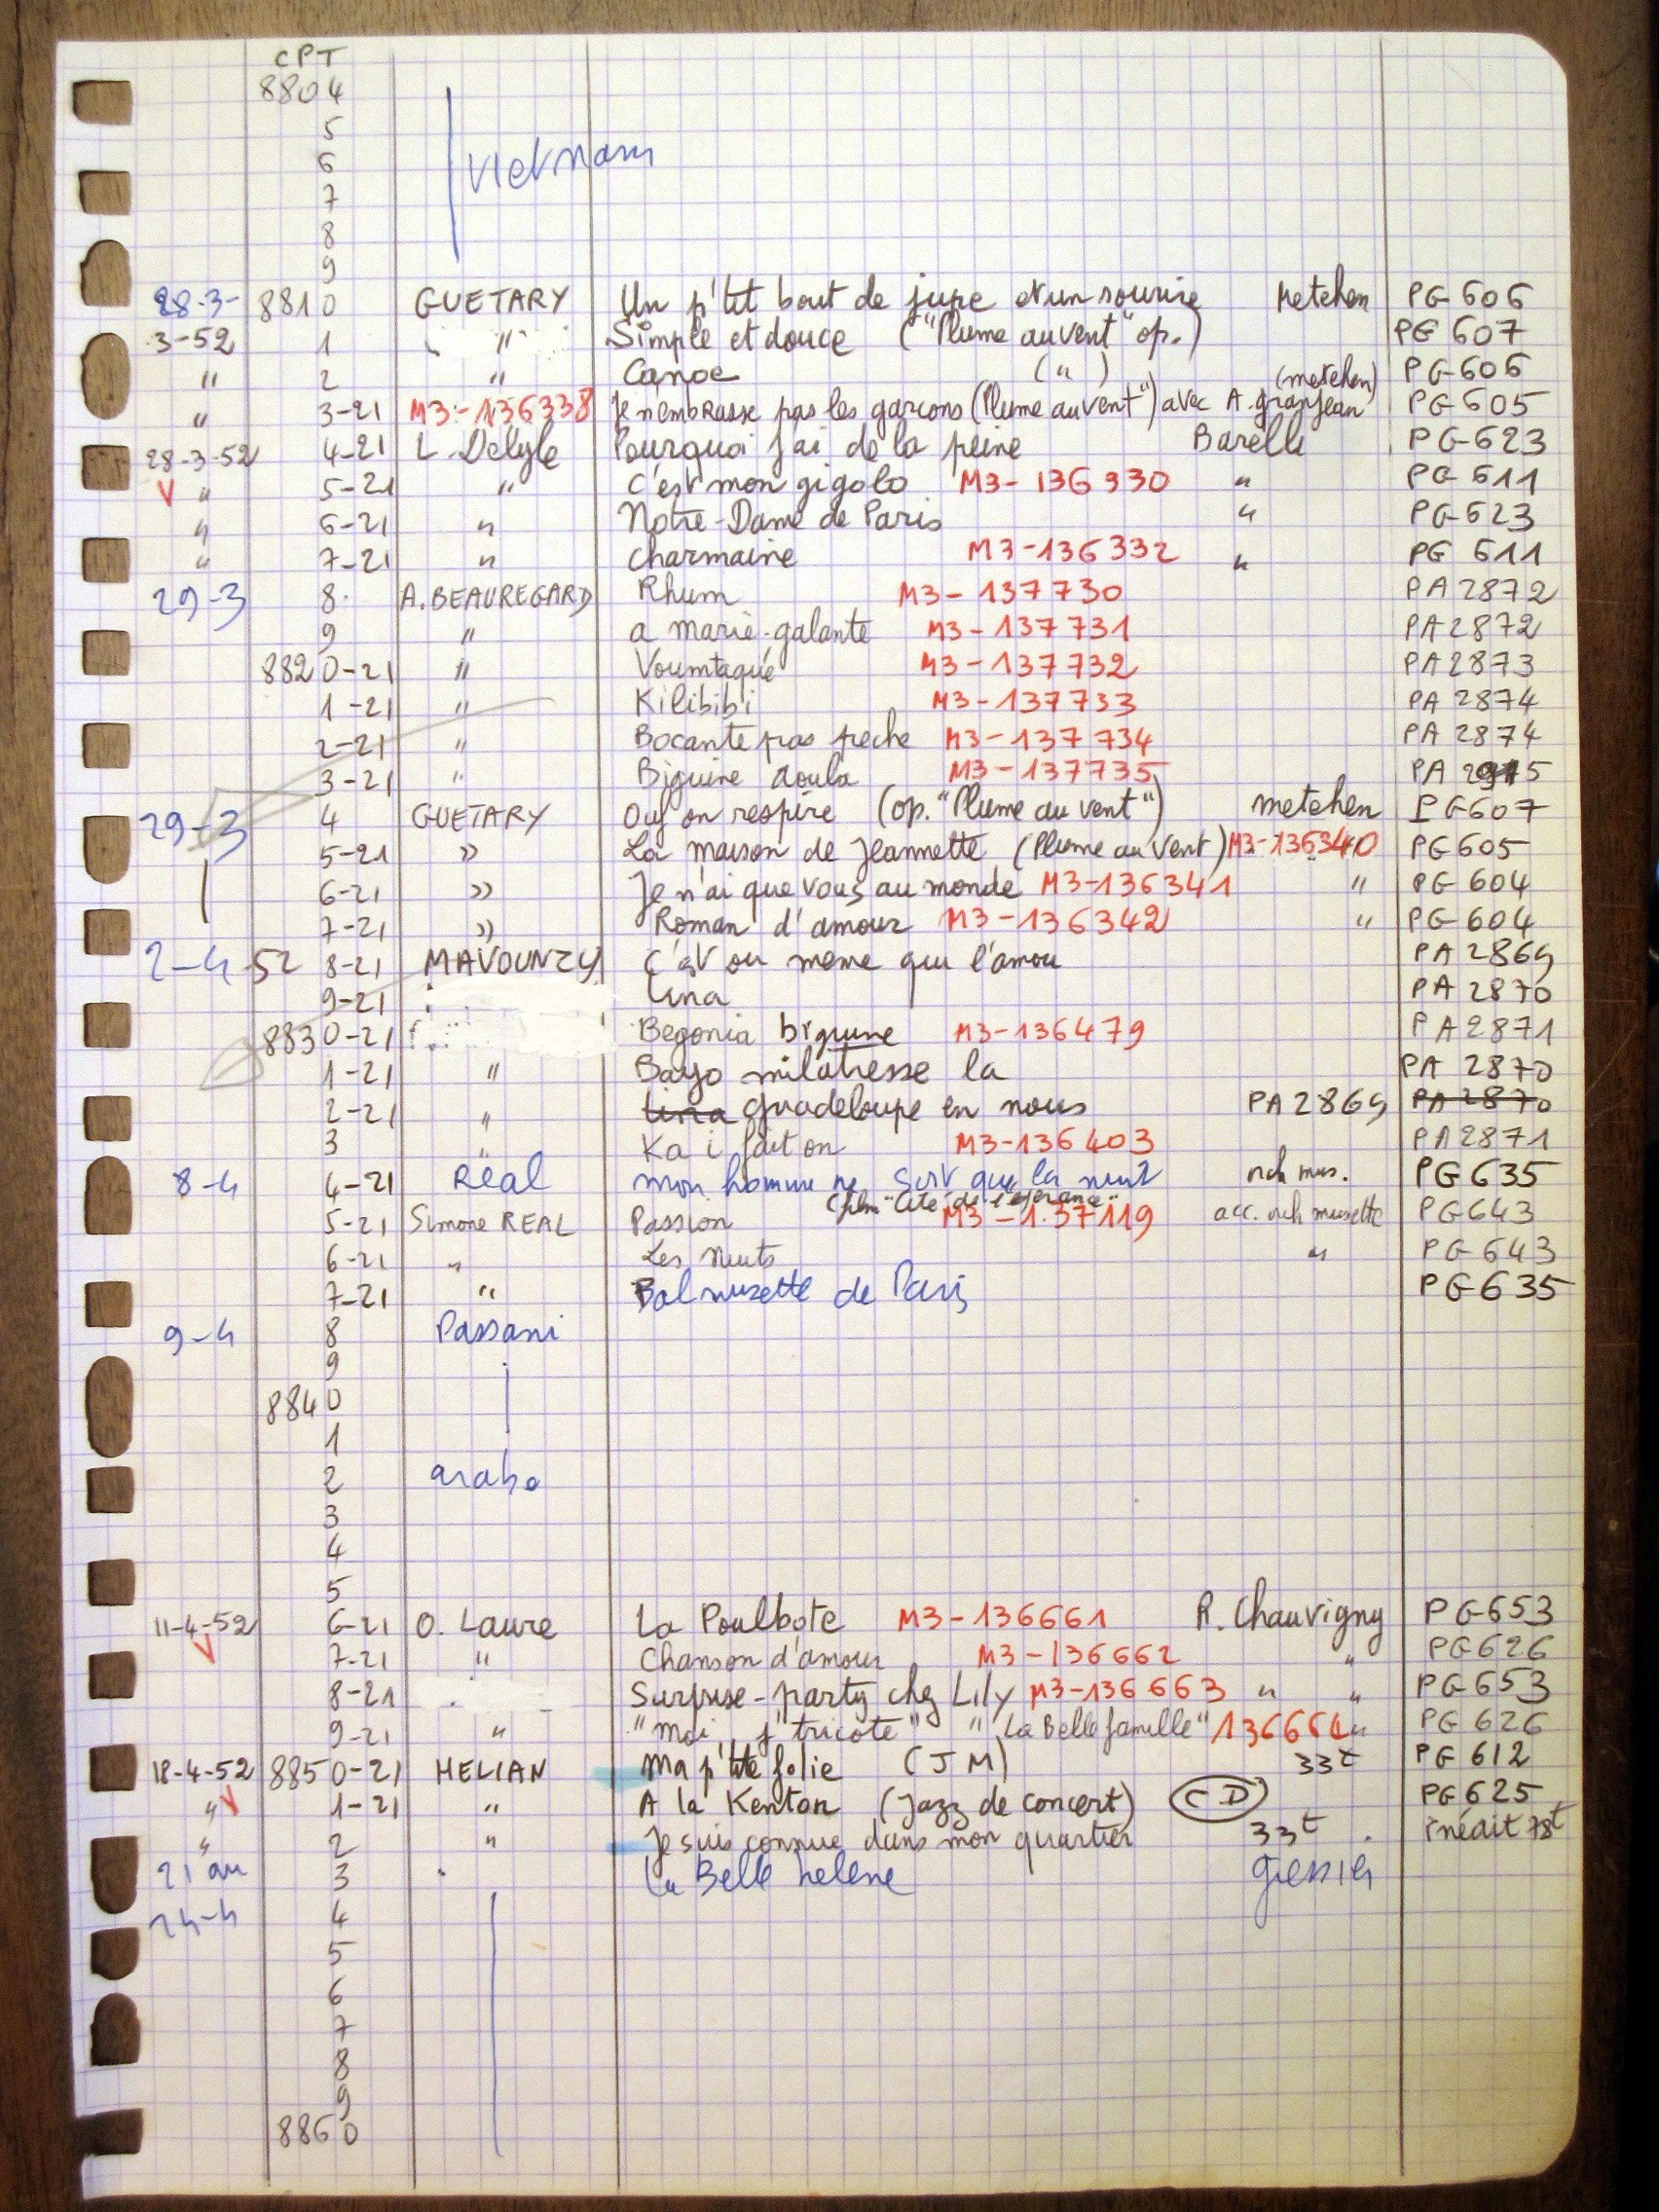 CPT
8804
5
6 Vietnam
7
8
9
28-3- 8810 GUETARY Un p'tit bout de jupe et un sourire Metehen PG 606
3-52 1 " Simple et douce ("Plume au vent" op.) PG 607
" 2 " Canoe (") (metehen) PG 606
" 3-21 M3-136338 Je n'embrasse pas les garçons (Plume au vent") avec A. granjean PG 605
28-3-52 4-21 L. Delyle Pourquoi j'ai de la peine Barelli PG 623
V " 5-21 " C'est mon gigolo M3-136330 " PG 611
" 6-21 " Notre-Dame de Paris " PG 623
" 7-21 " Charmaine M3-136332 " PG 611
29-3 8 A. BEAUREGARD Rhum M3-137730 PA 2872
9 " a marie-galante M3-137731 PA 2872
8820-21 " Voumtaqué M3-137732 PA 2873
1-21 " Kilibibi M3-137733 PA 2874
2-21 " Bocante pas peche M3-137734 PA 2874
3-21 " Biguine doula M3-137735 PA
29-3 4 GUETARY Ouf on respire (op. "Plume au vent") metehen PG607
5-21 " La maison de Jeannette (Plume au vent) M3-136340 PG 605
6-21 " Je n'ai que vous au monde M3-136341 " PG 604
7-21 " Roman d'amour M3-136342 " PG 604
2-4-52 8-21 MAVOUNZY C'est ou meme qui l'amou PA 2869
9-21 Lina PA 2870
8830-21 Begonia biguine M3-136479 PA 2871
1-21 " Bayo milatresse la PA 2870
2-21 " Lina Guadeloupe en nous PA 2869 PA 2870
3 " Ka i fait on M3-136403 PA 2871
8-4 4-21 Real mon homme ne sort que la nuit orch mus. PG 635
(film "Cité de l'espérance"
5-21 Simone REAL Passion M3-137119 acc. orch musette PG 643
6-21 " Les Nuits " PG 643
7-21 " Bal musette de Paris PG 635
9-4 8 Passani
9
8840
1
2 arabe
3
4
5
11-4-52 6-21 O. Laure La Poulbote M3-136661 R. Chauvigny PG 653
V 7-21 " Chanson d'amour M3-136662 " PG 626
8-21 Surprise-party chez Lily M3-136663 " " PG 653
9-21 " "Moi, j'tricote" "La Belle famille" 136664 " PG 626
18-4-52 8850-21 HELIAN Ma p'tite folie (JM) 33t PG 612
" V 1-21 " A la Kenton (Jazz de concert) CD PG 625
" 2 " Je suis connue dans mon quartier 33t . inédit 78t
21 au 3 La Belle helene
24-4 4
5
6
7
8
9
8860